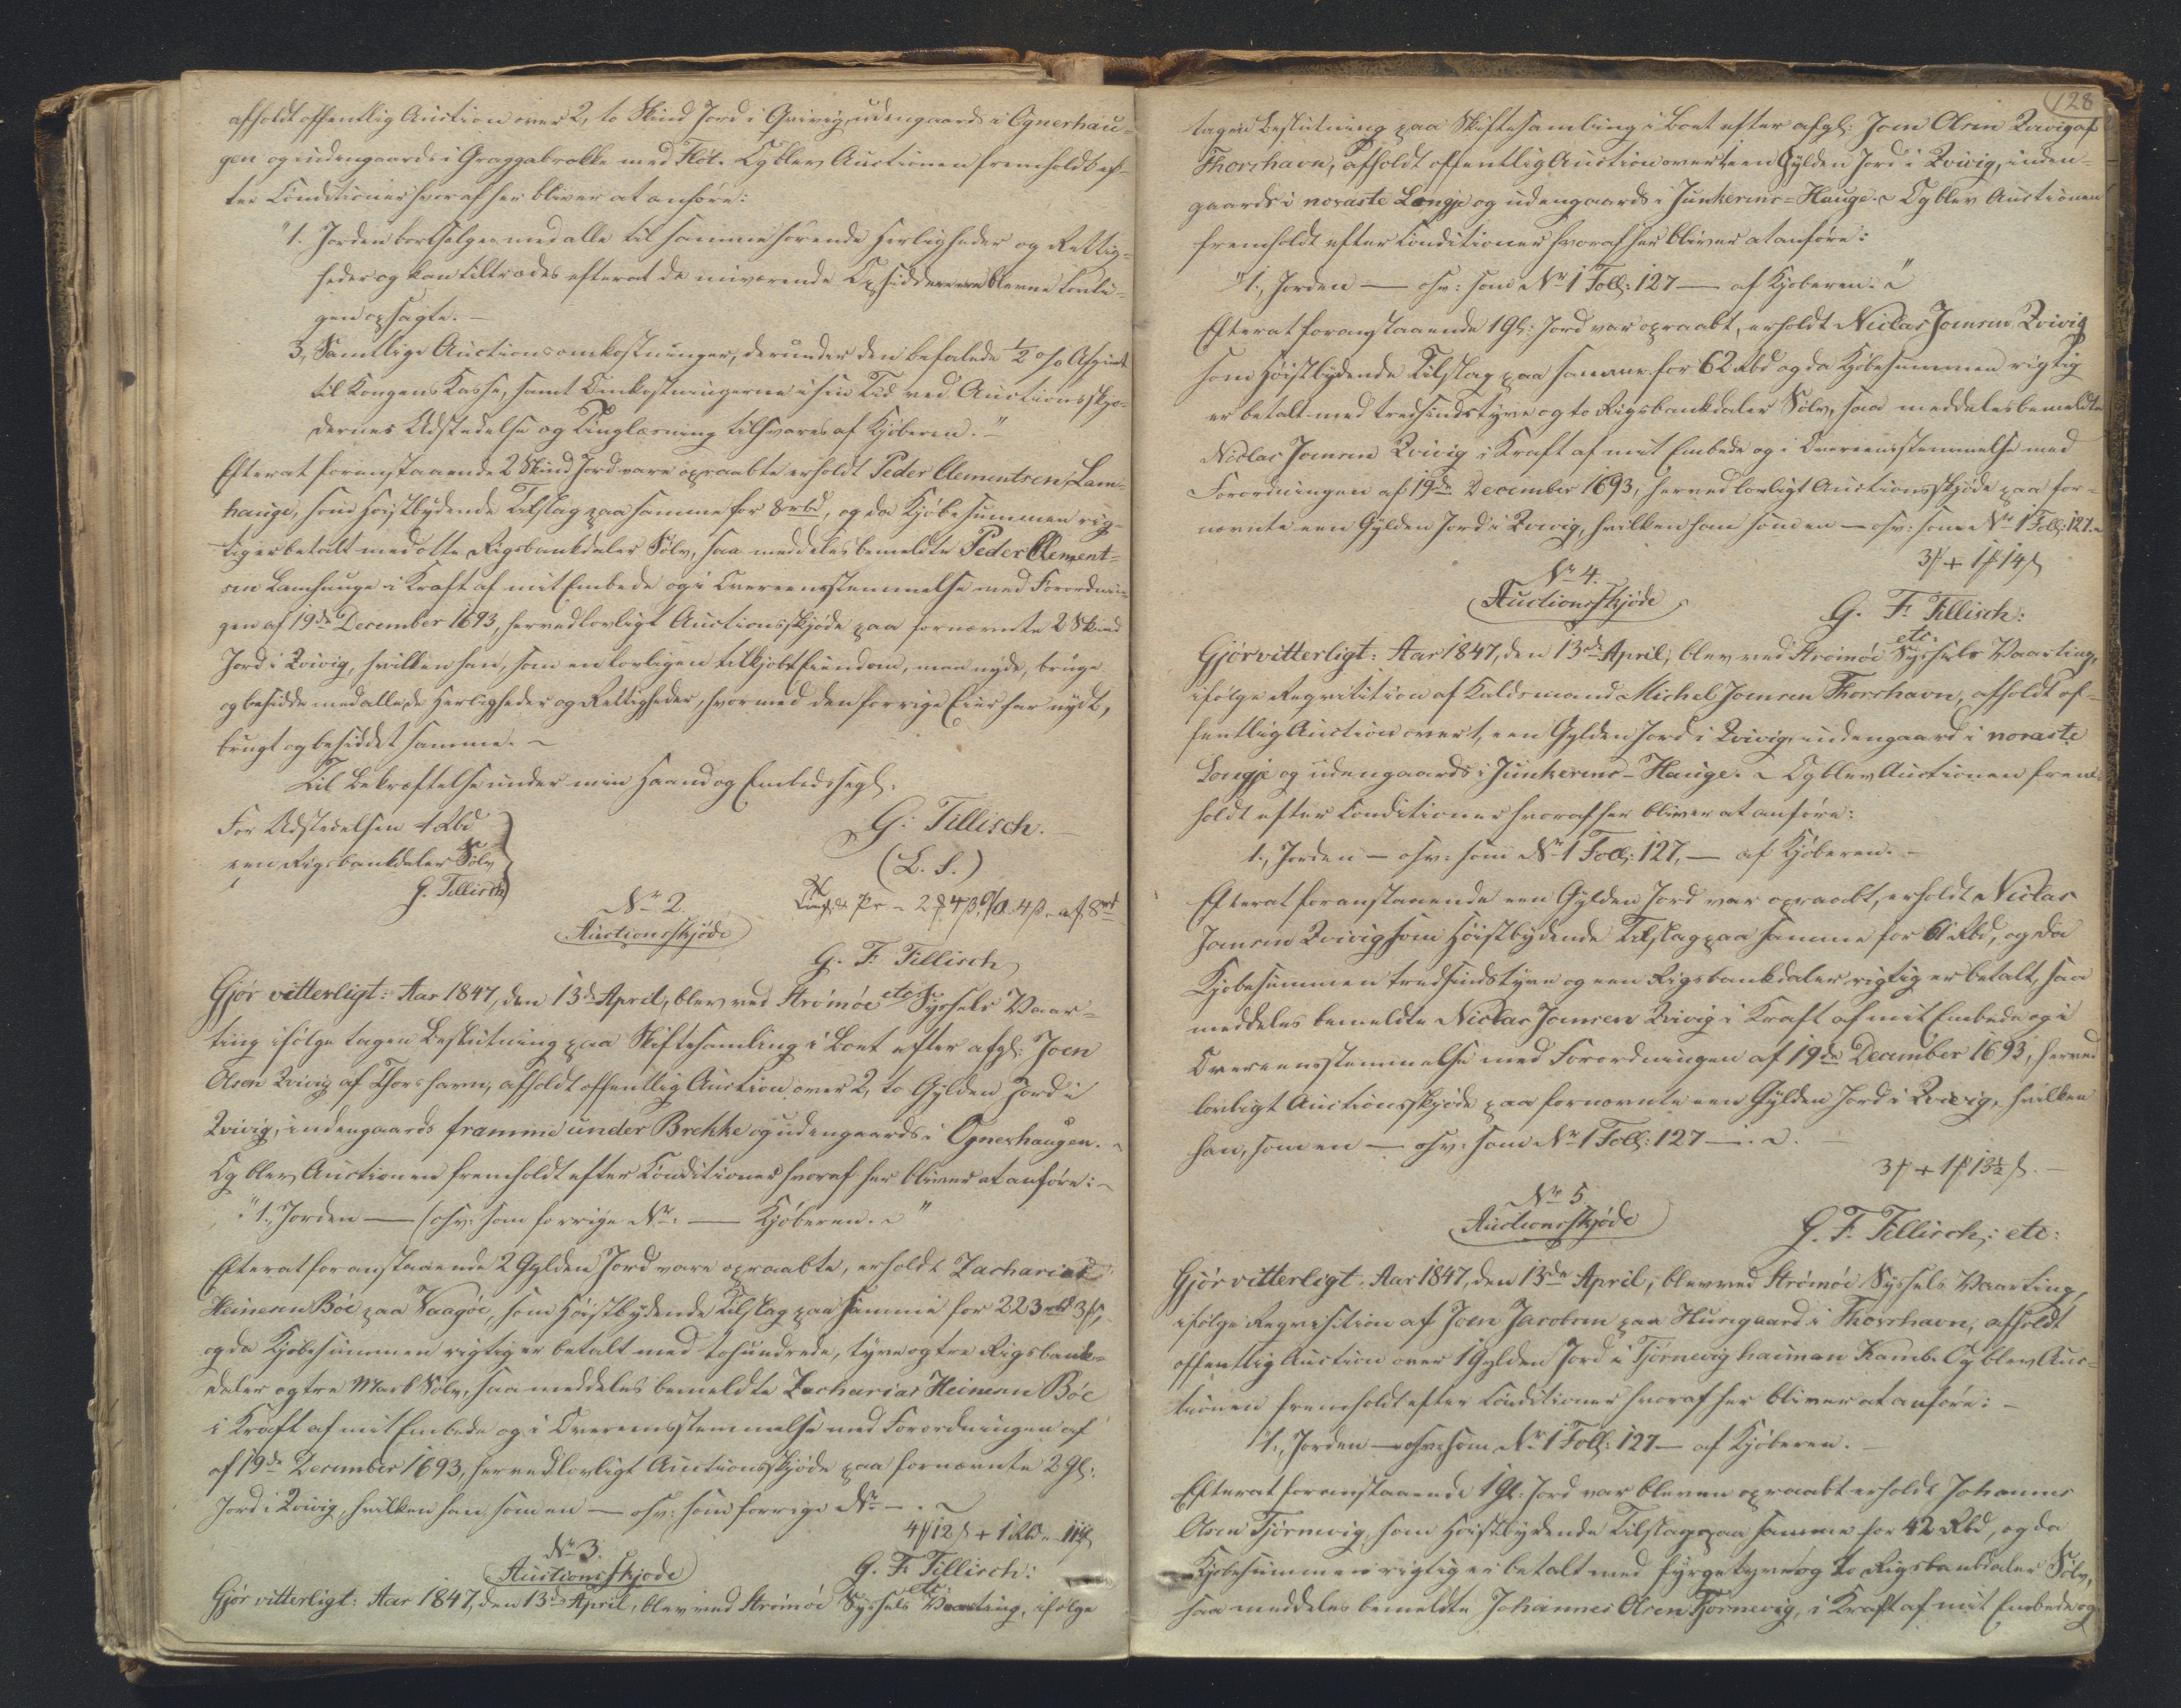 afholdt offentlig Auction over 2, to Skind Jord i Qvivig, indengaards i Ognerhau-
gen og udengaards i Graggabrekke med Flöt. Og blev Auctionen fremholdt ef-
ter Conditioner hvoraf her bliver at anföre:
"1. Jorden bortsælges med alle til samme hörende Herligheder og Rettig-
heder og kan tiltrædes efterat de nuværende Opsiddere ere blevne lovli-
gen opsagte. —
3, Samtlige Auctionsomkostninger, derunder den befalede ½ pCt Afgivt
til Kongens Kasse, samt Omkostningerne i sin Tid ved Auctionsskjö-
dernes Udstedelse og Tinglæsning tilsvares af Kjöberen." —
Efterat foranstaaende 2 Skind Jord vare opraabte erholdt Peder Clementsen Lam-
hauge, som höistbydende Tilslag paa samme for 8 rbd, og da Kjöbesummen rig-
tig er betalt med otte Rigsbankdaler Sölv, saa meddeles bemeldte Peder Clement-
sen Lamhauge i Kraft af mit Embede og i Overeensstemmelse med Forordnin-
gen af 19de December 1693, herved lovligt Auctionsskjöde paa fornævnte 2 Skind
Jord i Qvivig, hvilken han, som en lovligen tilkjöbt Eiendom, maa nyde, bruge
og besidde med alle de Herligheder og Rettigheder, hvormed den forrige Eier har nydt,
brugt og besiddet samme. —
Til Bekræftelse under min Haand og Embedssegl.
For Udstedelsen 1 Rbd
een Rigsbankdaler Sölv
G. Tillisch
G. Tillisch.
(L. S.)
No 2.
Auctionsskjöde
G. F. Tillisch
etc.
Gjör vitterligt: Aar 1847, den 13de April, blev ved Strömöe Syssels Vaar-
ting ifölge tagen Beslutning paa Skiftesamling i Boet efter afgl. Joen
Olsen Qvivig af Thorshavn, afholdt offentlig Auction over 2, to Gylden Jord i
Qvivig, indengaards framme under Brekke og udengaards i Ognerhaugen. —
Og blev Auctionen fremholdt efter Conditioner hvoraf her bliver at anföre: —
"1., Jorden — (osv: som forrige No: — Kjöberen. "
Efterat foranstaaende 2 Gylden Jord vare opraabte, erholdt Zacharias
Heinesen Böe paa Vaagöe, som höistbydende Tilslag paa samme for 223 rbd 3 mk,
og da Kjöbesummen rigtig er betalt med tohundrede, tyve og tre Rigsbank-
daler og tre Mark Sölv, saa meddeles bemeldte Zacharias Heinesen Böe
i Kraft af mit Embede og i Overeensstemmelse med Forordningen af
af 19de December 1693, herved lovligt Auctionsskjöde paa fornævnte 2 Gl:
Jord i Qvivig, hvilken han som en — osv: som forrige No —.
No 3.
Auctionsskjode
G. F. Tillisch:
etc:
Gjör vitterligt: Aar 1847, den 13de April, blev ved Strömöe Syssels Vaarting, ifölge
128
tagen Beslutning paa Skiftesamling i Boet efter afgl: Joen Olsen Qvivig af
Thorshavn, afholdt offentlig Auction over 1 een Gylden Jord i Qvivig, inden-
gaards i noraste Longje og udengaards i Junkerens-Hauge. Og blev Auctionen
fremholdt efter Conditioner hvoraf her bliver at anföre:
"1., Jorden — osv: som No 1 Foll: 127 — af Kjöberen."
Efterat foranstaaende 1 Gl: Jord var opraabt, erholdt Niclas Joensen Qvivig
som höistbydende Tilslag paa samme for 62 Rbd og da Kjöbesummen rigtig
er betalt med tredsindstyve og to Rigsbankdaler Sölv, saa meddeles bemeldte
Niclas Joensen Qvivig i Kraft af mit Embede og i Overeensstemmelse med
Forordningen af 19de December 1693, herved lovligt Auctionsskjöde paa for-
nævnte een Gylden Jord i Qvivig, hvilken han som en — osv: som No 1 Foll: 127.
No 4.
Auctionsskjöde
G. F. Tillisch:
etc:
Gjör vitterligt: Aar 1847, den 13de April, blev ved Strömöe Syssels Vaarting,
ifölge Requisition af Kuldsmand Michel Joensen Thorshavn, afholdt of-
fentlig Auction over 1, een Gylden Jord i Qvivig, indengaards i noraste
Longje og udengaards i Junkerens-Hauge. Og blev Auctionen frem-
holdt efter Conditioner hvoraf her bliver at anföre:
1., Jorden — osv: som No 1 Foll: 127, — af Kjöberen. —
Efterat foranstaaende een Gylden Jord var opraabt, erholdt Niclas
Joensen Qvivig som höistbydende Tilslag paa samme for 61 Rbd, og da
Kjöbesummen tredsindstyve og een Rigsbankdaler rigtig er betalt, saa
meddeles bemeldte Niclas Joensen Qvivig i Kraft af mit Embede og i
Overeensstemmelse med Forordningen af 19de December 1693, herved
lovligt Auctionsskjöde paa fornævnte een Gylden Jord i Qvivig, hvilken
han, som en — osv: som No 1 Foll: 127 —.
No 5.
Auctionsskjöde
G. F. Tillisch; etc:
Gjör vitterligt. Aar 1847, den 13de April, blev ved Strömöe Syssels Vaarting,
ifölge Requisition af Joen Jacobsen paa Husegaard i Thorshavn, afholdt
offentlig Auction over 1 Gylden Jord i Tjörnevig haiman Kamb. Og blev Auc-
tionen fremholdt efter Conditioner hvoraf her bliver at anföre: —
"1., Jorden — osv: som No 1 Foll: 127 — af Kjöberen.
Efterat foranstaaende 1 Gl: Jord var bleven opraabt erholdt Johannes
Olsen Tjörnevig, som höistbydende Tilslag paa samme for 42 Rbd, og da
Kjöbesummen rigtig er betalt med fyrgetyve og to Rigsbankdaler Sölv,
saa meddeles bemeldte Johannes Olsen Tjörnevig, i Kraft af mit Embede og